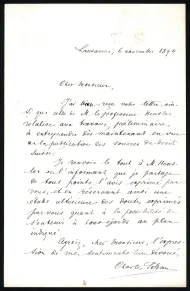 Lausanne, 6 novembre 1894
Cher monsieur,
J'ai bien reçu votre lettre, ain-
si que celle de M. le professeur Heusler
relative aux travaux préliminaires
à entreprendre dès maintenant en vue
de la publication des sources du droit
suisse.
Je renvoie le tout à M. Heus-
ler en l'informant que je partage
de tous points l'avis exprimé par
vous, et en réservant ainsi une
étude ultérieure des doutes exprimés
par vous quant à la possibilité de
s'entendre à tous égards au plan
indiqué.
Agréez, cher Monsieur, l'expres-
sion de mes sentiments bien dévoués,
Charles